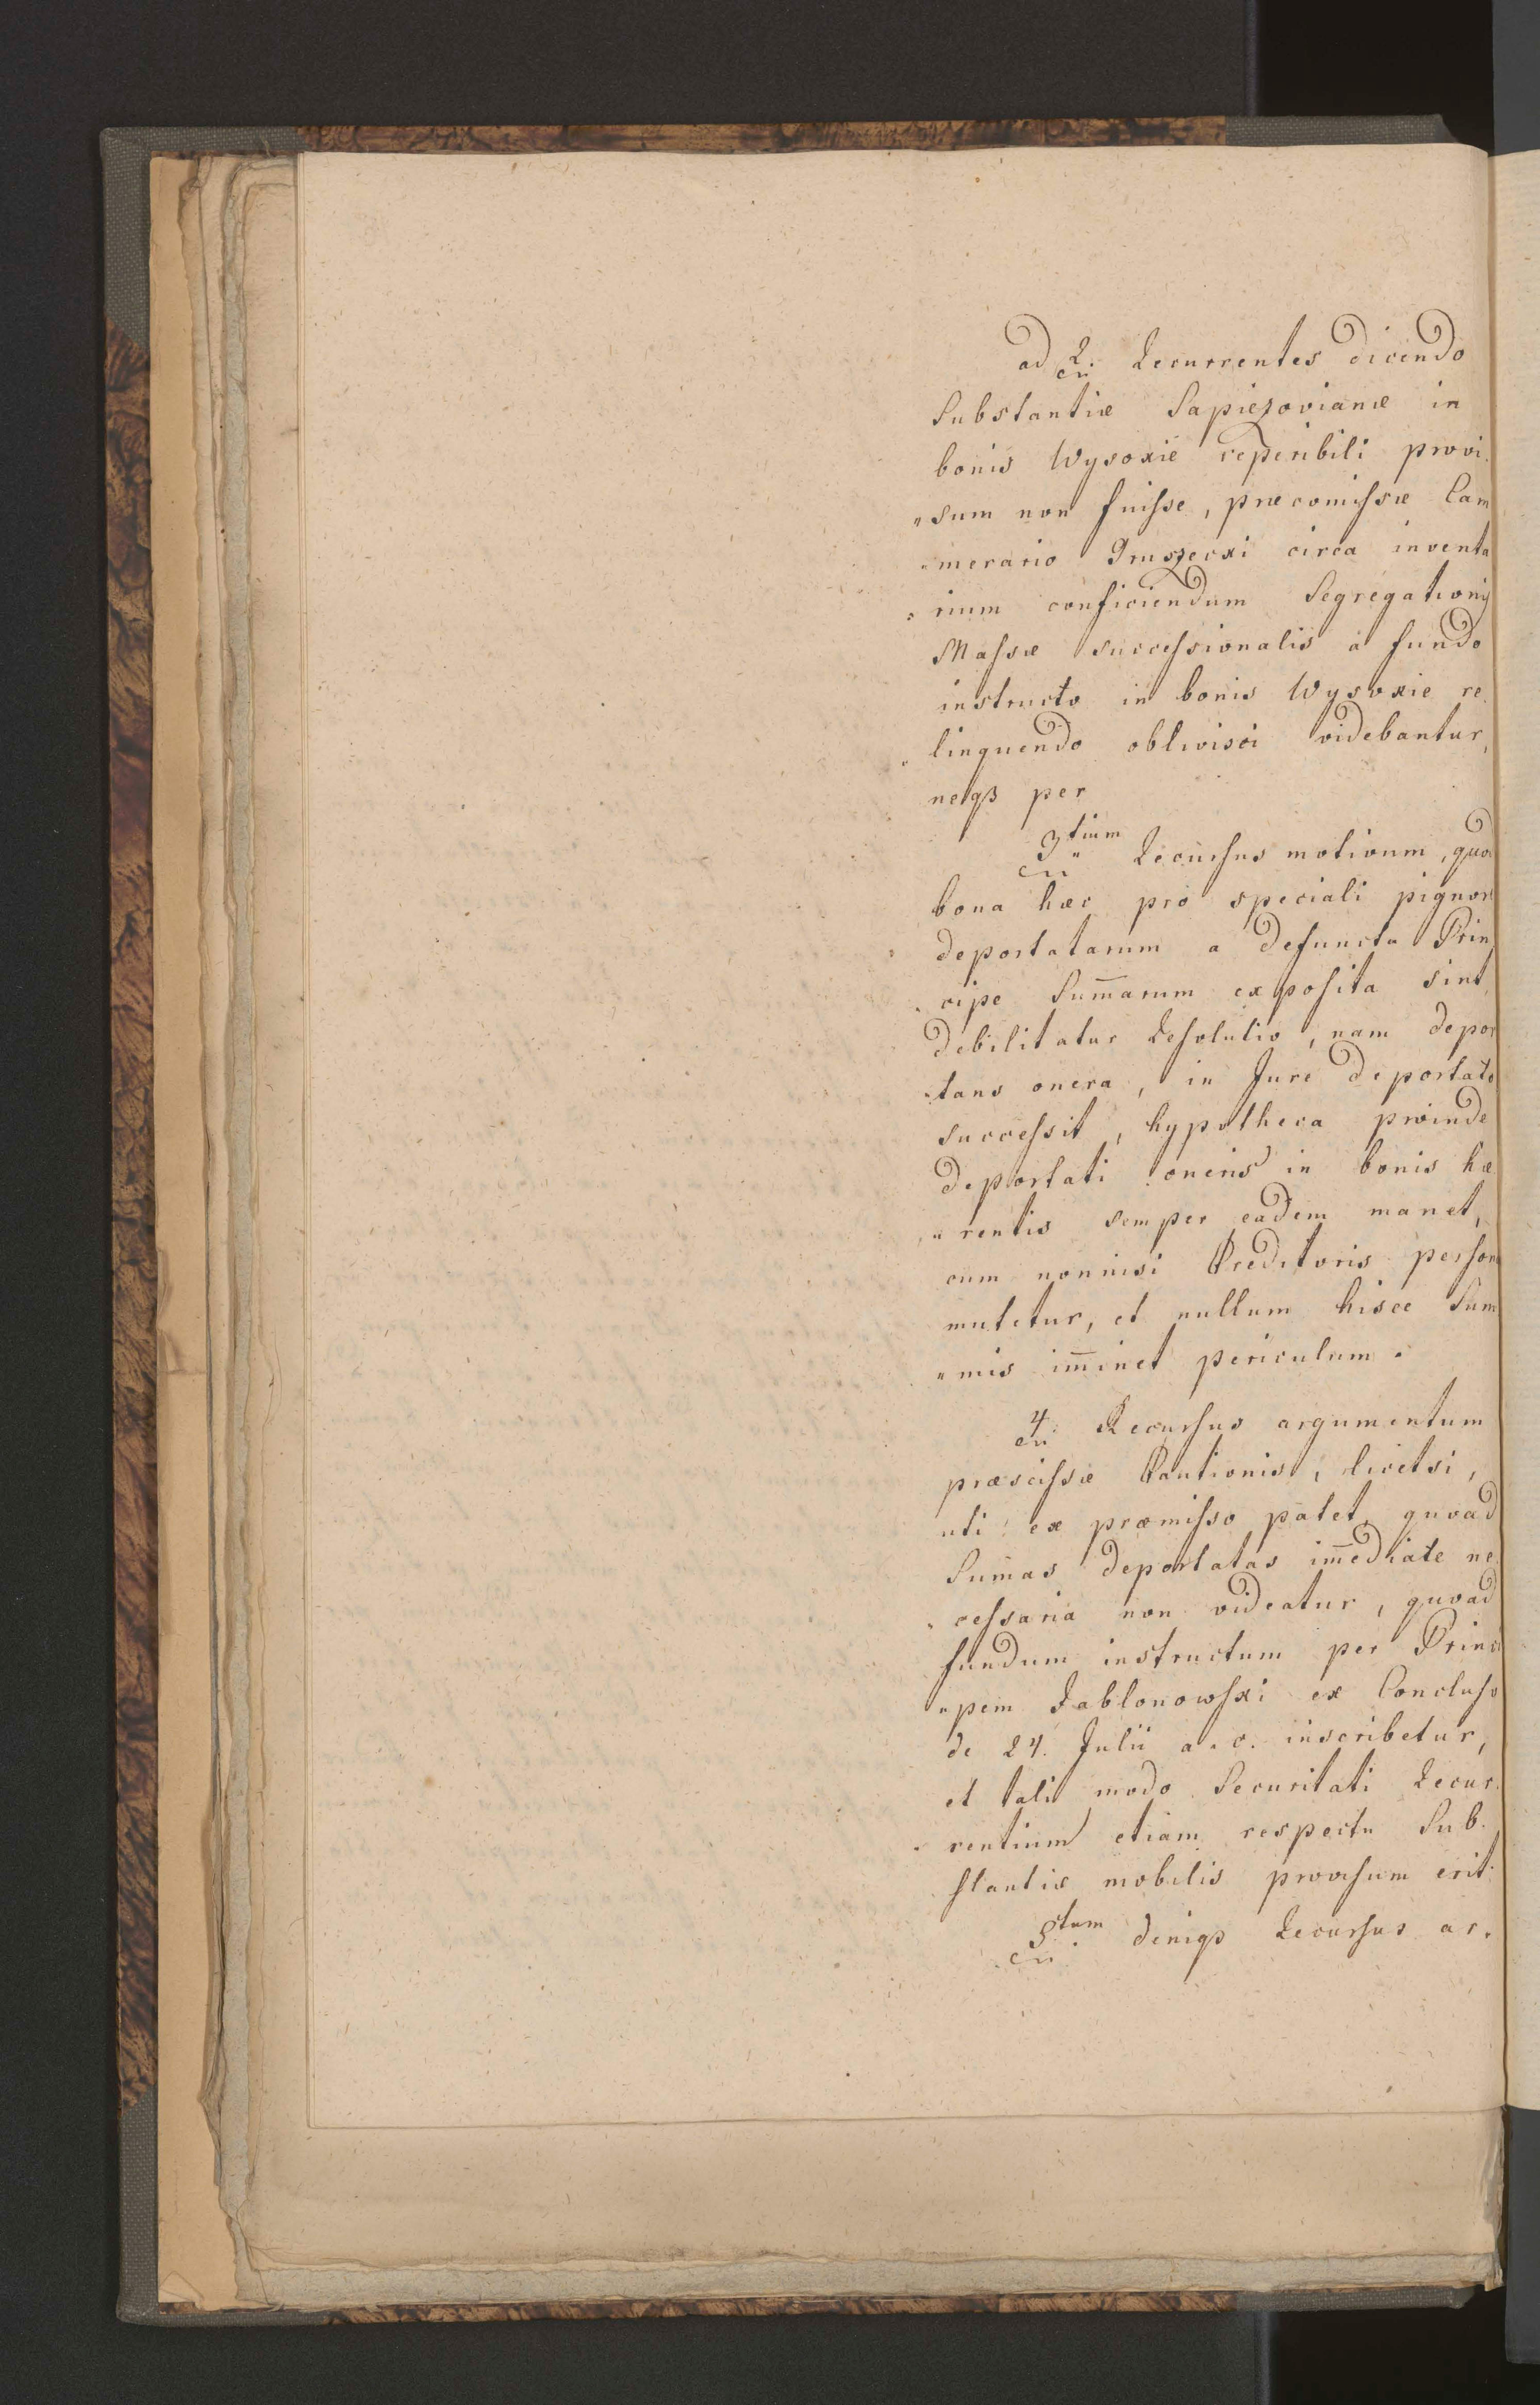 ad 2. Recurrentes dicendo
Substantiæ Sapiezovianæ in
bonis Wysokie reperibili provi
„sum non fuisse, præcomissæ Cam
„merario Gruszecki circa inventa
„rium conficiendum Segregationis
Massæ successionalis a fundo
instructo in bonis Wysokie re
„linquendo oblivisci videbantur,
neqз per
3tium Recursus motivum, quod
bona hæc pro speciali pignori
deportatarum a defuncta Prin
„cipe Sum̄arum exposita sint
debilitatur Resolutio, nam depor
„tans onera, in Jure deportati
successit, hypotheca proinde
deportati oneris in bonis hæ
„rentis semper eadem manet,
cum nonnisi Creditoris persona
mutetur, et nullum hisce Sum
„mis im̄inet periculum.
4. Recursus argumentum
præscissæ Cautionis, licetsi,
uti ex præmisso patet, quoad
Sum̄as deportatas im̄ediate ne
„cessaria non videatur, quoad
fundum instructum per Princi
„pem Jablonowski ex Concluso
de 24. Julii a. c. inscribetur,
et tali modo Securitati Recur
„rentium etiam respectu Sub
stantiæ mobilis provisum erit.
5tum deniqз Recursus ar.